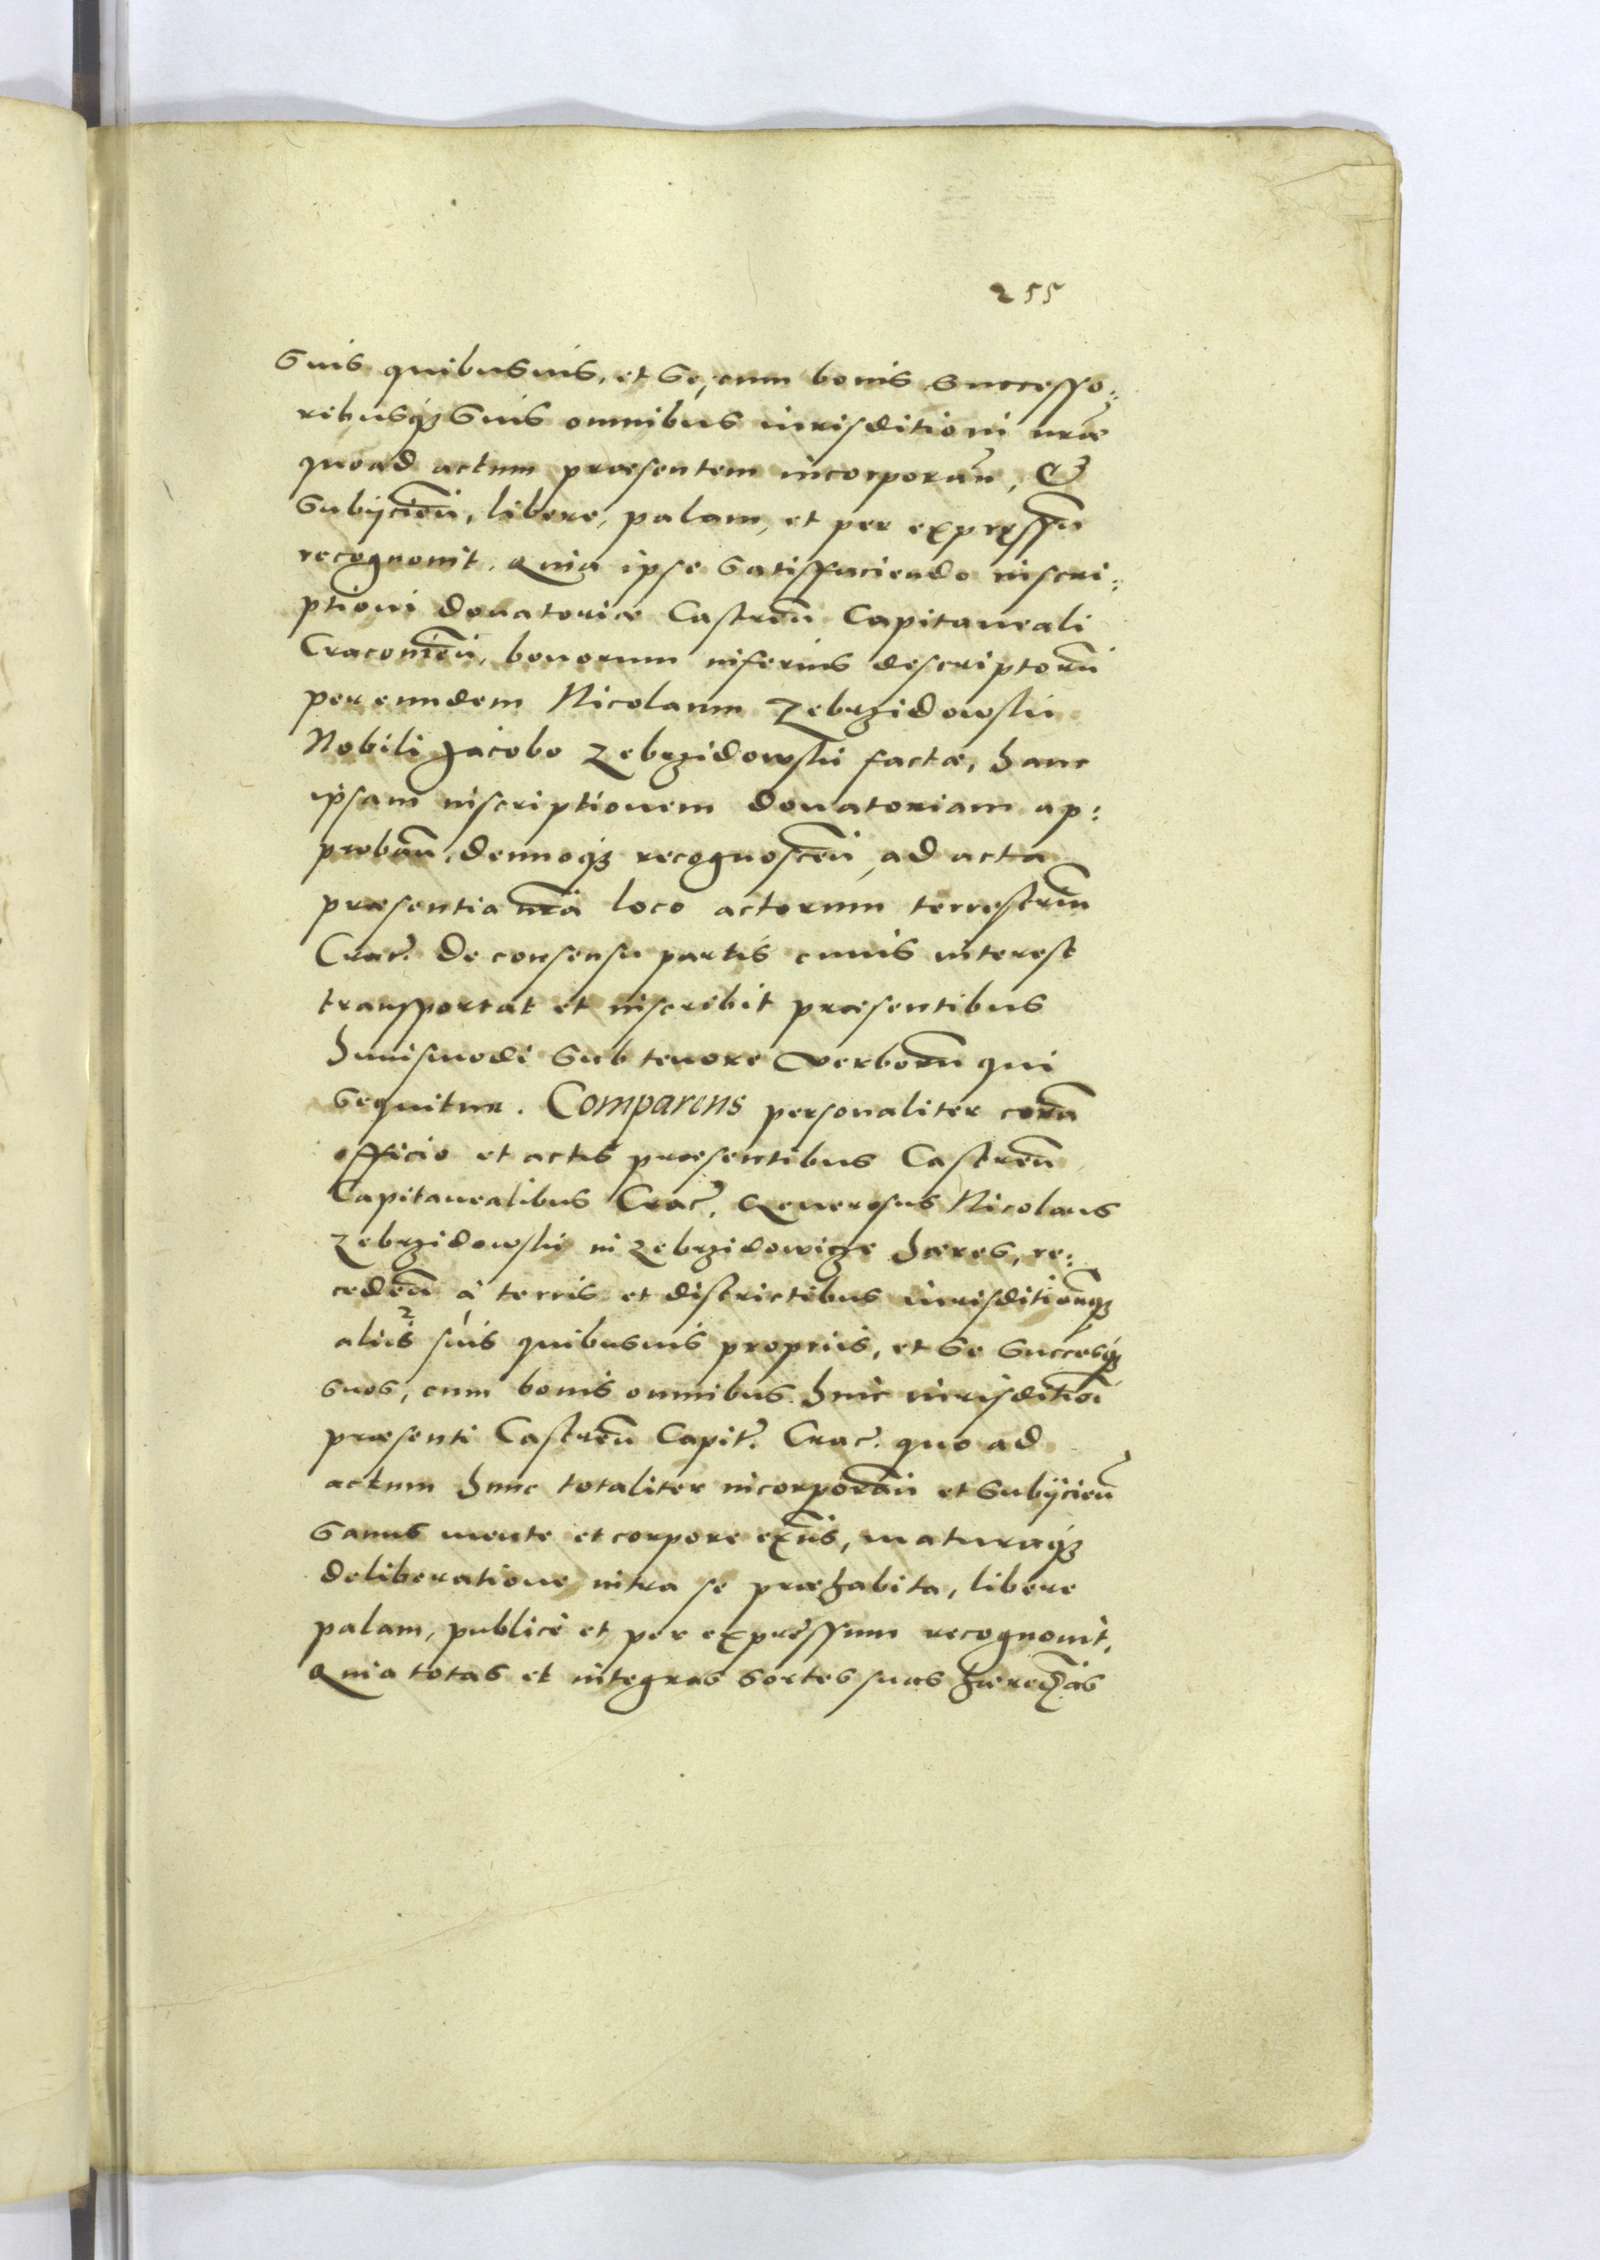 255
suis quibusuis, et se, cum bonis successo:
ribusq; suis omnibus iurisditioni nr̃æ
quoad actum præsentem incorporan̄, &
subijcien̄, libere, palam, et per expressũ
recognouit. Quia ipse satisffaciendo inscri:
ptioni donatoriæ Castren̄ Capitaneali
Cracouien̄, bonorum inferius descriptorũ
per eundem Nicolaum Zebrzidowski
Nobili Jacobo Zebrzidowski factæ, hanc
ipsam inscriptionem donatoriam ap:
proban̄, denuoq; recognoscen̄, ad acta
præsentia nr̃a loco actorum terrestriũ
Crac̃. de consensu partis cuius interest
transportat et inscribit præsentibus
huiusmodi sub tenore verborũ qui
sequitur. Comparens personaliter corã
officio et actis præsentibus Castren̄
Capitanealibus Crac̃. Generosus Nicolaus
Zebrzidowski in Zebrzidowicze hæres, re:
ceden̄ à terris et districtibus iurisditionũq;
alijs suis quibusuis proprijs, et se succes̃q;
suos, cum bonis omnibus huic iurisditioĩ
præsenti Castren̄ Capit̃. Crac̃. quo ad
actum hunc totaliter incorporan̄ et subijcien̄
sanus mente et corpore exñs, maturaq;
deliberatione intra se præhabita, libere
palam, publicè et per expressum recognouit,
Quia totas et integras sortes suas hæred̃as